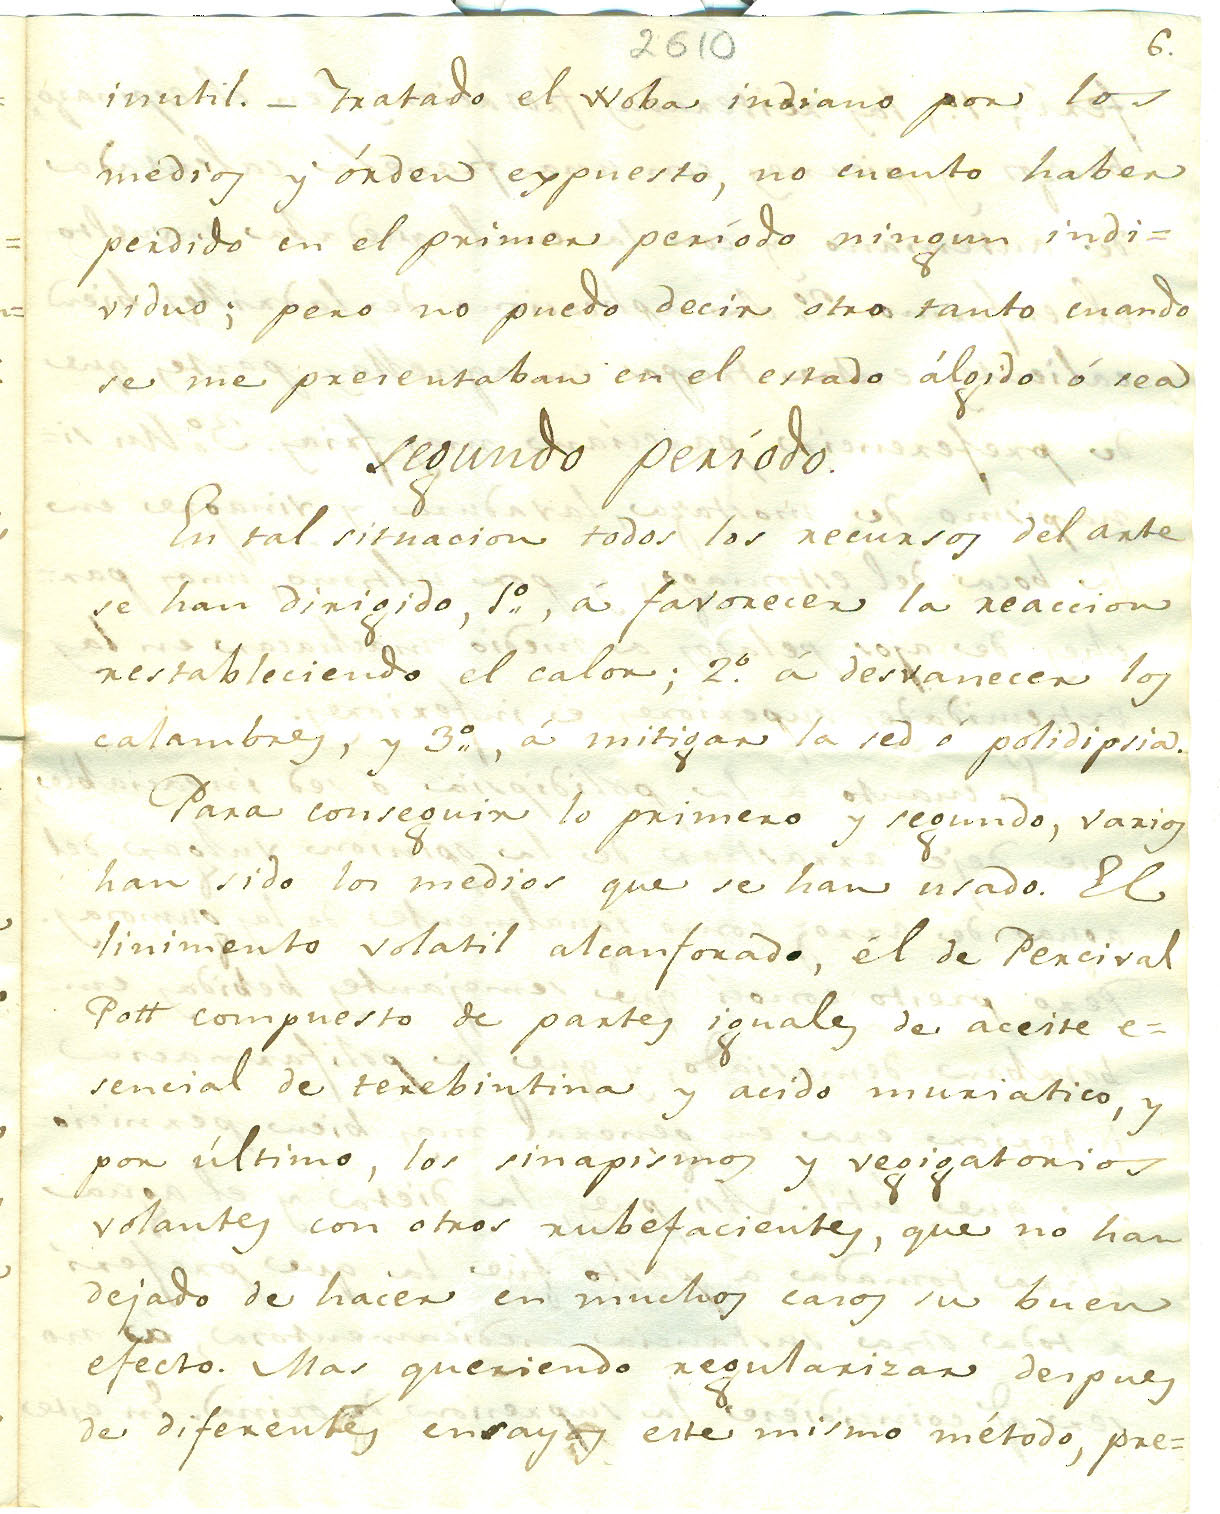 2610
6.
inutil. _ Tratado el Woba indiano por los
medios y órden expuesto, no cuento haber
perdido en el primer período ningun indi=
viduo; pero no puedo decir otro tanto cuando
se me presentaban en el estado álgido ó sea
segundo período.
En tal situacion todos los recursos del arte
se han dirigido, 1º, á favorecer la reaccion
restableciendo el calor; 2º á desvanecer los
calambres, y 3º, á mitigar la sed ó polidipsia.
Para conseguir lo primero y segundo, varios
han sido los medios que se han usado. El
linimento volatil alcanforado, él de Percival
Pott compuesto de partes iguales de aceite e=
sencial de terebintina y acido muriatico, y
por último, los sinapismos y vegigatorios
volantes con otros rubefacientes, que no han
dejado de hacer en muchos casos su buen
efecto. Mas queriendo regularizar despues
de diferentes ensayos este mismo método, pre=